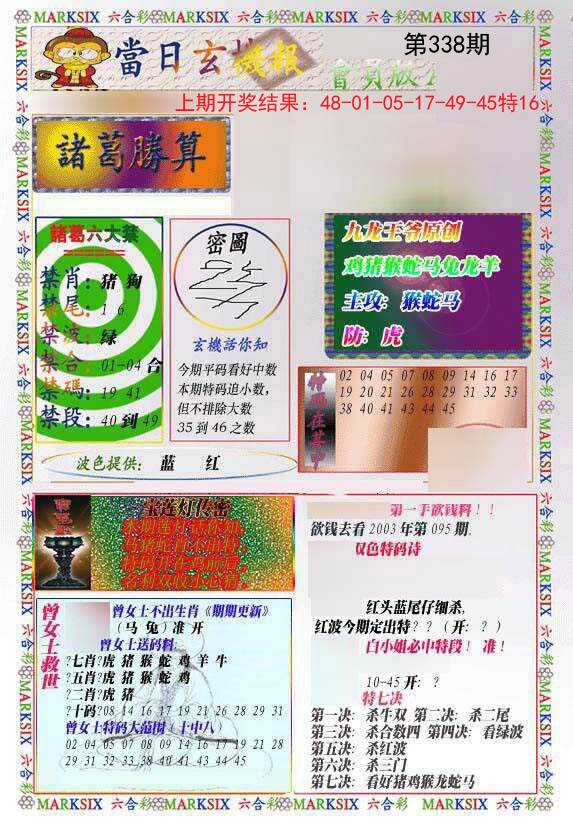 MARKSIX 六合彩 MARKSIX 六合彩 MARKSIX 六合彩 MARKSIX 六合彩
當日玄機報
第338期
上期开奖结果：48-01-05-17-49-45特16
諸葛勝算
諸葛六大禁
禁肖：猪 狗
禁尾：1 6
禁波：绿
禁合：01-04 合
禁碼：19 41
禁段：40 到 49
密圖
玄機話你知
今期平码看好中数
本期特码追小数，
但不排除大数
35 到 46 之数
九龙王爷原创
鸡猪猴蛇马兔龙羊
主攻：猴蛇马
防：虎
02 04 05 07 08 09 14 16 17
19 20 21 26 28 29 31 32 33
38 40 41 43 44 45
波色提供： 蓝 红
宝莲灯传密
第一手欲钱料！！
欲钱去看 2003 年第 095 期.
双色特码诗
红头蓝尾仔细杀,
红波今期定出特？？（开：？）
白小姐必中特段！ 准！
10-45 开：？
特七决
第一决：杀牛双 第二决：杀二尾
第三决：杀合数四 第四决：看绿波
第五决：杀红波
第六决：杀三门
第七决：看好猪鸡猴龙蛇马
曾女士救世
曾女士不出生肖《期期更新》
（马 兔）准 开
曾女士送码料:
?七肖?虎 猪 猴 蛇 鸡 羊 牛
?五肖?虎 猪 猴 蛇 鸡
?二肖?虎 猪
?十码?08 14 16 17 19 21 26 28 29 31
曾女士特码大范围（十中八）
02 04 05 07 08 09 14 16 17 19 21 28
29 31 32 33 38 40 41 43 44 45
MARKSIX 六合彩 MARKSIX 六合彩 MARKSIX 六合彩 MARKSIX 六合彩 MARKSIX